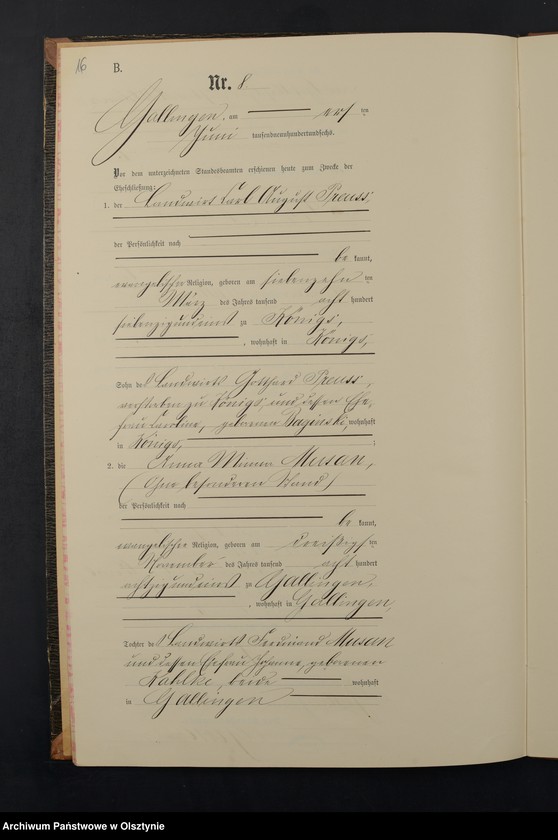 16
B.
Nr. 8
Gallingen, am ten
Juni tausendneunhundertundsechs.
Vor dem unterzeichneten Standesbeamten erschienen heute zum Zwecke der
Eheschließung:
1. der Landwirt Carl August Preuss,
der Persönlichkeit nach
be kannt,
evangelischer Religion, geboren am siebenzehn ten
März des Jahres tausend acht hundert
siebenzigund zu Königs,
, wohnhaft in Königs,
Sohn des Landwirts Gotthard Preuss,
verstorben zu Königs, und dessen Ehe-
frau Caroline, geborenen wohnhaft
in Königs,
2. die Anna Minna Musan,
(Ohne besonderen Stand)
der Persönlichkeit nach
be kannt,
evangelischer Religion, geboren am ten
November des Jahres tausend acht hundert
achtzigund zu Gallingen,
, wohnhaft in Gallingen,
Tochter des Landwirts Ferdinand Musan
und dessen Ehefrau Johanne, geborenen
Kahlke, beide wohnhaft
in Gallingen
Archiwum Państwowe w Olsztynie